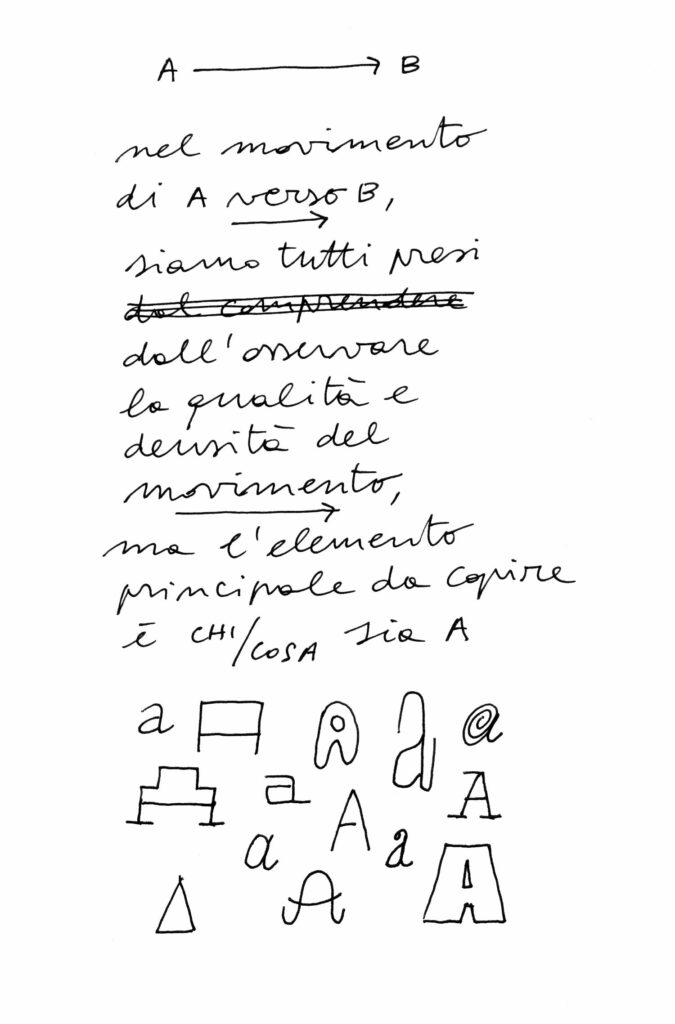 A → B
nel movimento
di A verso B,
siamo tutti presi
dal comprendere
dall'osservare
la qualità e
densità del
movimento,
ma l'elemento
principale da capire
è CHI/COSA sia A
a A A a a
A a A A
a a A
A A